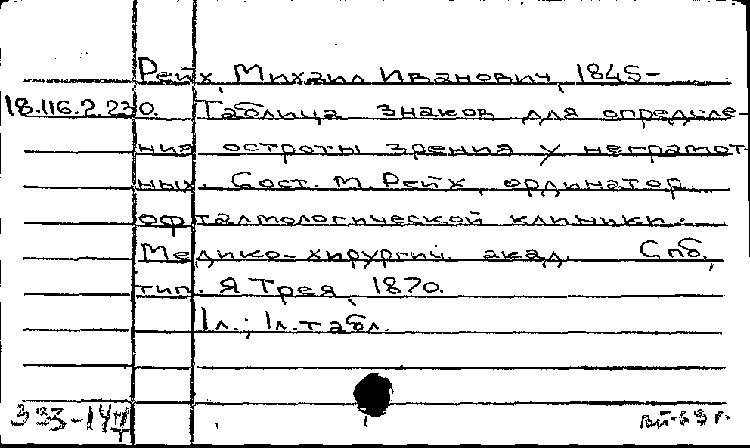 Рейх, Михаил Иванович, 1845-
18.116.2.230. Таблица знаков для определе-
ния остроты зрения у неграмот-
ных. Сост. М. Рейх, ординатор
офталмологической клиники.
Медико-хирургич. акад. Спб.,
тип. Я Трея, 1870.
1 л.; 1 л. табл.